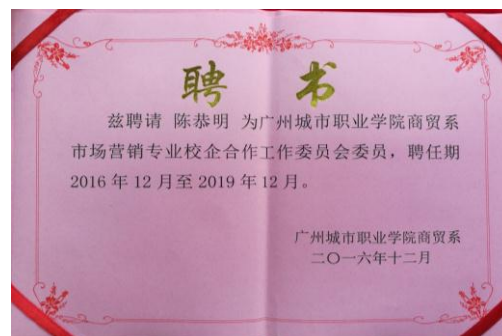 聘 书
兹聘请 陈恭明 为广州城市职业学院商贸系
市场营销专业校企合作工作委员会委员，聘任期
2016年12月至2019年12月。
广州城市职业学院商贸系
二〇一六年十二月